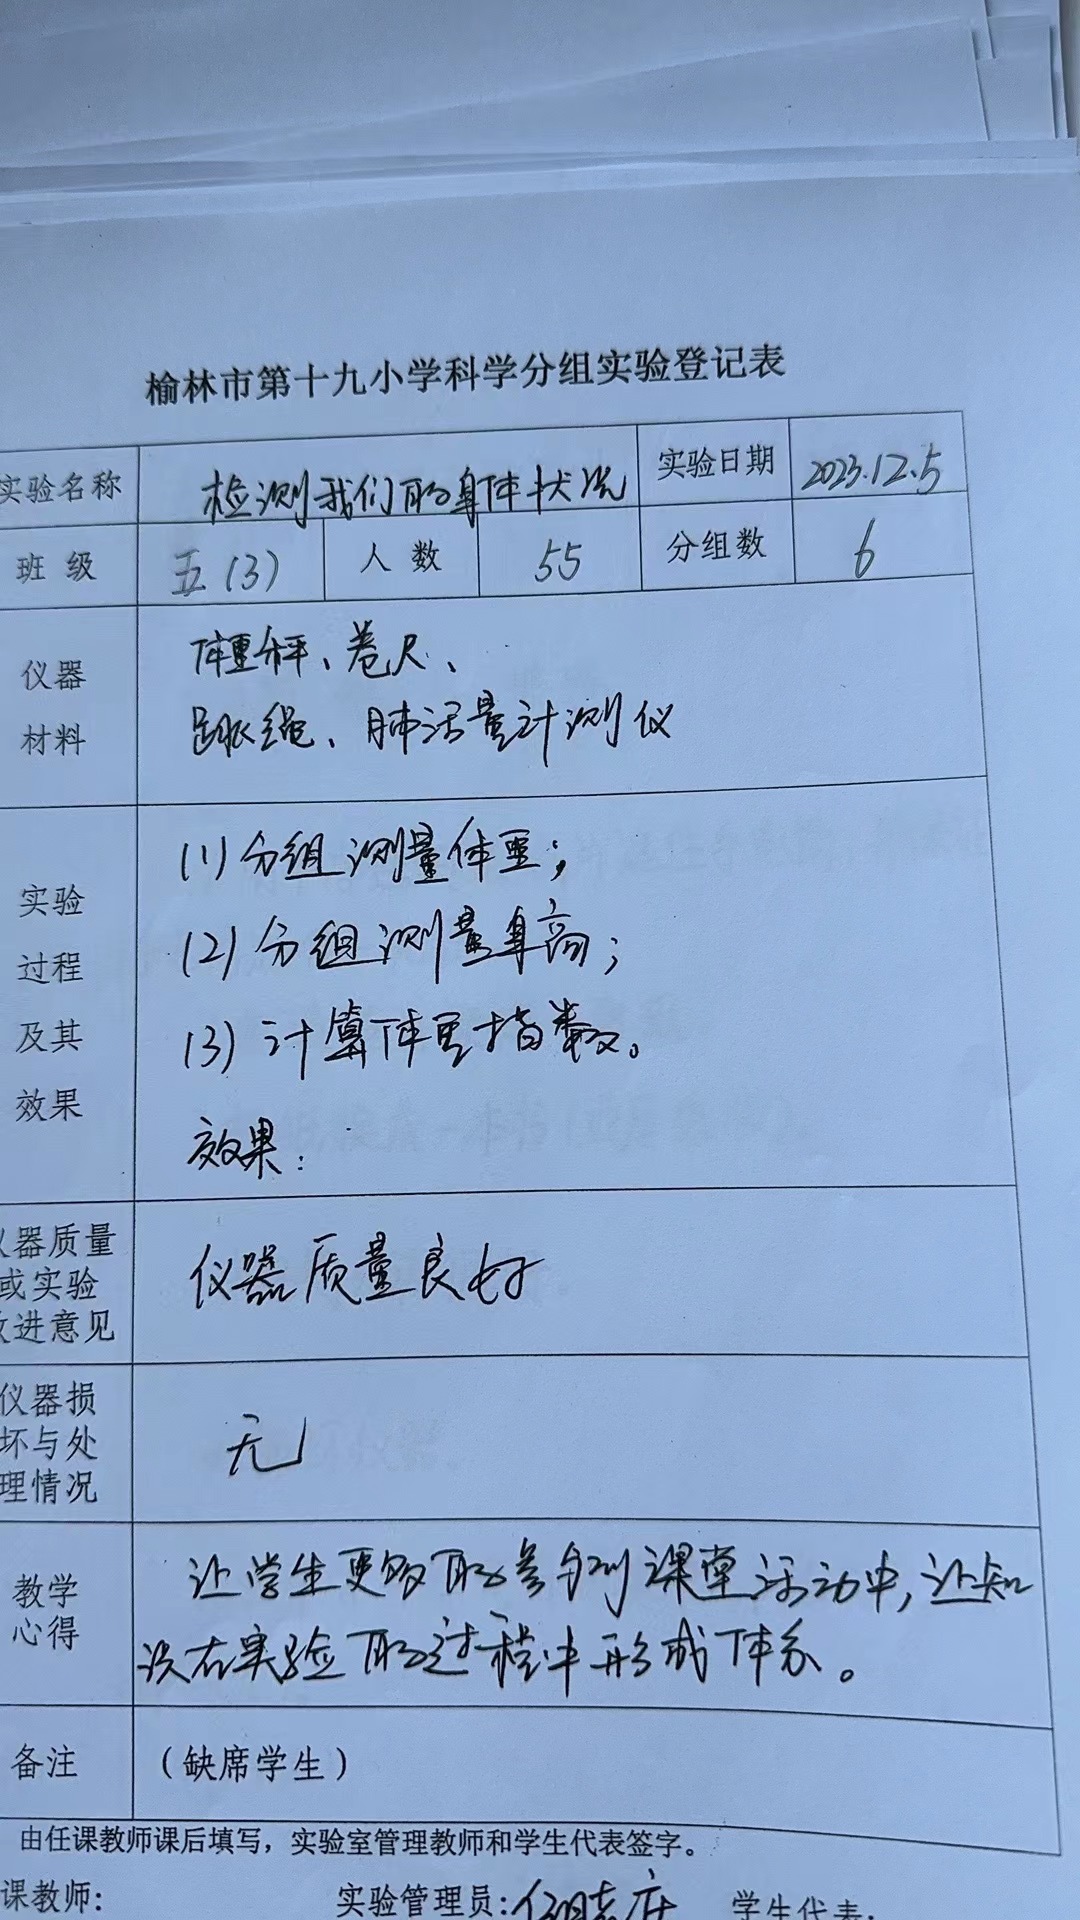 榆林市第十九小学科学分组实验登记表
实验名称 检测我们的身体状况 实验日期 2023.12.5
班级 五(3) 人数 55 分组数 6
仪器
材料
体重秤、卷尺、
跳绳、肺活量计测仪
实验
过程
及其
效果
(1)分组测量体重;
(2)分组测量身高;
(3)计算体重指数。
效果:
仪器质量
或实验
改进意见
仪器质量良好
仪器损
坏与处
理情况
无
教学
心得
让学生更多的参与到课堂活动中,让知
识在实验的过程中形成体系。
备注 (缺席学生)
由任课教师课后填写,实验室管理教师和学生代表签字。
课教师: 实验管理员: 学生代表: